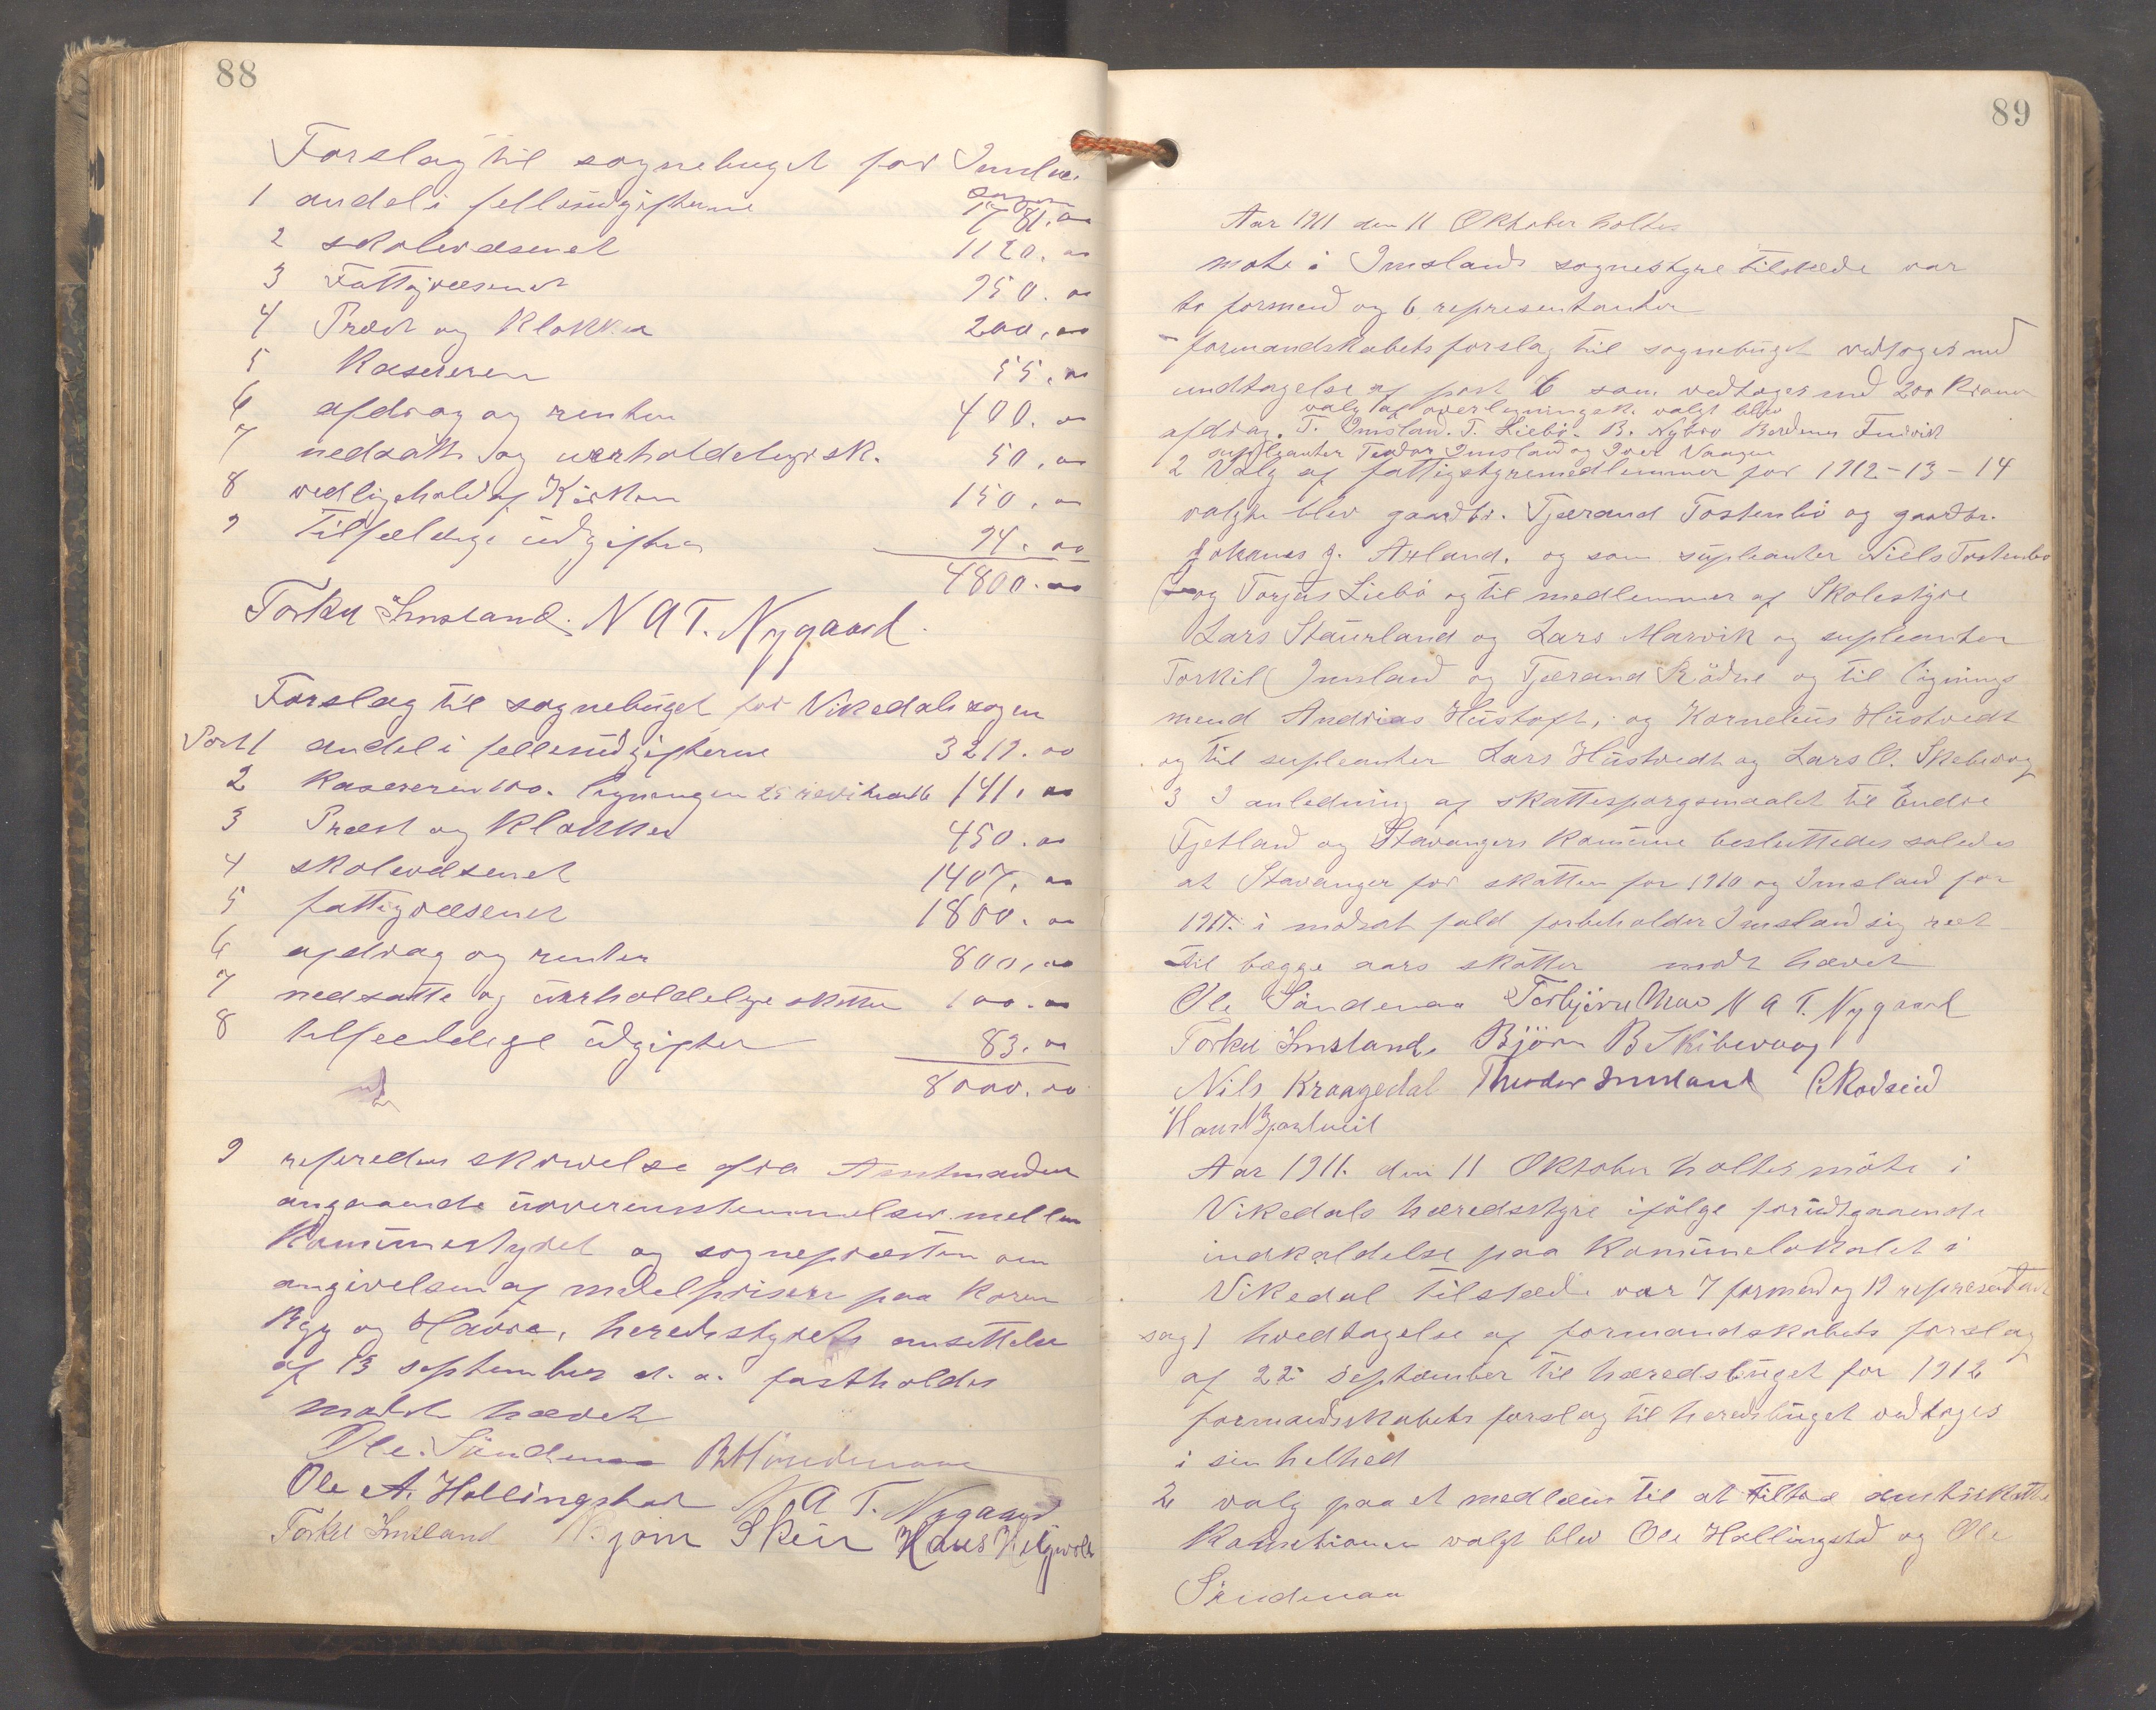 88
Forslag til sognebuget for Imsland
sogn
1 andel i fellesudgifterne 1781.00
2 skolevæsenet 1120.00
3 Fattigvæsenet 950.00
4 Præst og Klokker 200.00
5 Kasereren 55.00
6 afdrag og renter 400.00
7 nedsatte og uerholdelige sk. 50.00
8 vedligehold af Kirken 150.00
9 Tilfældige udgifter 94.00
4800.00
Torkel Imsland. N A T. Nygaard.
Forslag til sognebuget for Vikedals sogn
Post 1 andel i fellesudgifterne 3219.00
2 Kasereren 100. ligningen 25 revisor 16 141.00
3 Præst og Klokker 450.00
4 skolevæsenet 1407.00
5 fattigvæsenet 1800.00
6 afdrag og renter 800.00
7 nedsatte og uerholdelige skatter 100.00
8 tilfeldige udgifter 83.00
8000.00
9 refereders skrivelse fra Amtmanden
angaaende uoverensstemmelser mellem
Komunestyret og sognepræsten om
angivelsen af medelprisen paa Koren
Byg og Havre, heredsstyrets ansettelse
af 13 september d. a. fastholdes
mødet hævet
Ole Söndenaa
Ole A. Hallingstad N A T. Nygaard
Torkel Imsland Bjørn Skeie Hans Helgevold
89
Aar 1911 den 11 Oktober holtes
møte i Imslands sognestyre tilstæde var
to formend og 6 representanter
formandskabets forslag til sognebuget vedtoges med
undtagelse af post 6 som vedtoges med 200 Kroner
valg af overligningsk. valgt blev
afdrag. T. Imsland. T. Liebø. B. Nybro
supleanter Teodor Imsland og Iver Vaagen
2 Valg af fattigstyremedlemmer for 1912-13-14
valgte blev gaardbr. Tjærand Tostenbø og gaardbr.
Johanes J. Axland. og som supleanter Niels Tostenbø
og Torjus Liebø og til medlemmer af Skolestyre
Lars Staurland og Lars Marvik og supleanter
Torkil Imsland og Tjærand Rödne og til lignings
mend Andreas Hustoft, og Kornelius Hustvedt
og til supleanter Lars Hustvedt og Lars O. Skebevog
3 I anledning af skattespørgsmaalet til Endre
Tjetland og Stavangers Komune besluttedes saledes
at Stavanger for skatten for 1910 og Imsland for
1911. i modsat fald forbeholder Imsland sig ret
til begge aars skatter mødt hævet
Ole Söndenaa Torbjörn N A T. Nygaard
Torkel Imsland. Björn B Skibevaag
Nils Kraagedal Theodor Imsland
Hans
Aar 1911. den 11 Oktober holtes möte i
Vikedals heredsstyre ifølge forudgaaende
indkaldelse paa Komunelokalet i
Vikedal tilstæde var 7 formend og 19 representant
sag 1 hvedtagelse af formandskabets forslag
af 22 September til heredsbuget for 1912
formandsskabets forslag til heredsbuget vedtoges
i sin helhed
2 valg paa et medlem til at tiltræ amtsskatte
Komisionen valgt blev Ole Hallingstad og Ole
Söndenaa